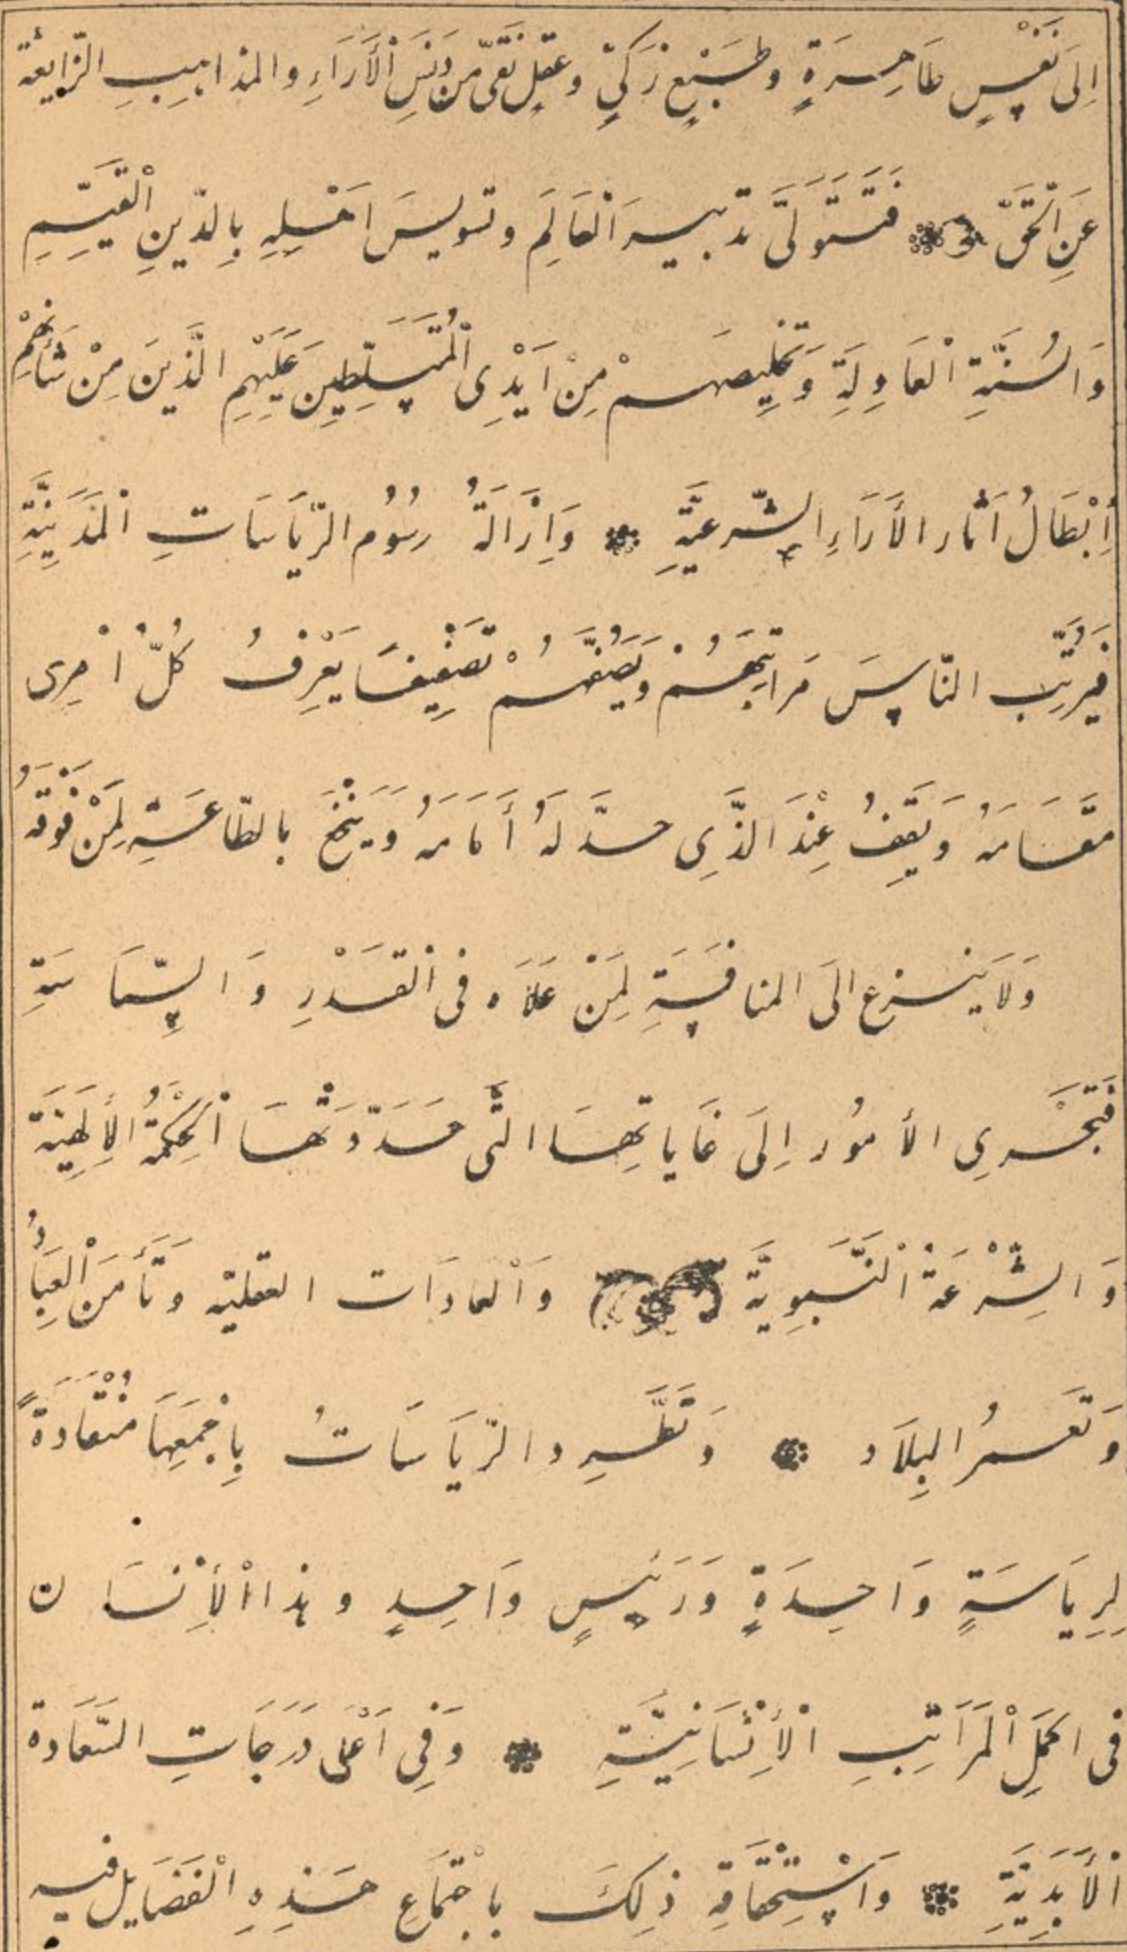 اِلَى نَفْسٍ طَاهِرَةٍ وطَبْعٍ زَكيٍّ وعَقلٍ نَقىٍّ من دَنَسِ الْأَرَاءِ والمذاهِبِ الزّايغة
عَنِ الْحَقّ فَتَتَوَلَّى تدبير الْعَالَمِ وتسويسَ اَهْلِهِ بِالدّينِ الْقَيِّمِ
وَالسُنَّةِ الْعَادِلَةِ وَتخليصهمْ مِنْ اَيْدِى الْمُتَسَلِّطِينَ عَلَيْهِمِ الَّذينَ مِنْ شَأنِهِمْ
إِبْطَالُ اَثار الأَرَاءِ الشّرعيَّةِ وَاِزَالَةُ رسُوُم الرّيَاسَاتِ الْمَدَنِيَّةِ
فَيُرَتِّب النّاسَ مَراتِبَهُمْ وَيَصُنّفهُمْ تَصنْيِفًا يَعْرِفُ كُلُّ اُمْرِى
مقَامَهُ وَيَقِفُ عِنْدَ الَّذِى حدَّ لَهُ أَمَامَهُ وَيَنْخَعَ بالطّاعَةِ لِمَنْ فَوْقَهُ
وَلَا ينزع الَى المنافسَةِ لِمَنْ عَلَاَه فى الْقَدْرِ وَالسِّيَاسَةِ
فَتَجْرِى الأمُور اِلَى غَاياتِهَا الَّتى حَدَّدَتْهَا الْحِكْمَةُ الأِلَهِيَّة
وَالشِّرْعَةْ الْنَّبَوِيَّة وَالْعادَات العقليّه وَتَأمَنَ الْعِبَادُ
وَتعمرُ البِلَاد وَتَطَّرِد الرّيَاسَاتُ بِاَجْمَعِهَا مُنْقَادَةً
لِرِيَاسَةٍ وَاحِدَةٍ وَرَئيسٍ وَاحِدٍ وهذا اْلأِنْسَان
فى اكمَلِ الْمَرَاتِبِ اْلأِنْسَانِيَّةِ وَفِى اَعْلى دَرَجَاتِ السَّعَادة
الْأَبَدِيَّةِ وَاسْتِحْقَاقِهِ ذلِكَ باجْتمَاعِ هَذِهِ الْفَضَايل فيه